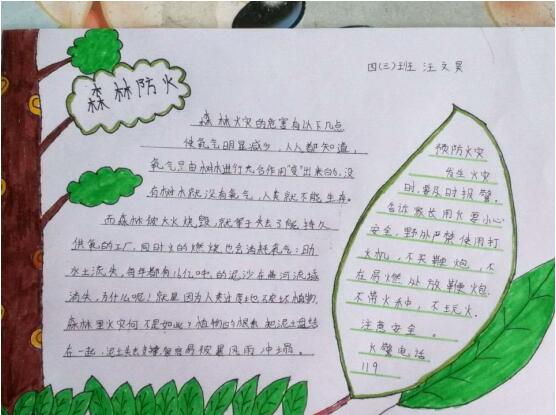 森林防火
四(三)班 汪文昊
森林火灾的危害有以下几点
使氧气明显减少,人人都知道,
氧气是由树木进行光合作用"变"出来的,没
有树木就没有氧气,人类就不能生存。
而森林被大火烧毁,就等于失去了能持久
供氧的工厂,同时火的燃烧也会消耗氧气:助
水土流失,每年都有16亿吨的泥沙在黄河流域
消失,为什么呢!就是因为人类过度地破坏植物
森林里火灾何不是如此?植物的根系把泥土盘结
在一起,泥土失去支撑便容易被暴风雨冲塌。
预防火灾
发生火灾
时,要及时报警。
告诉家长用火要小心
安全,野外严禁使用打
火机,不买鞭炮,不
在易燃处放鞭炮.
不带火种,不玩火.
注意安全。
火警电话
119